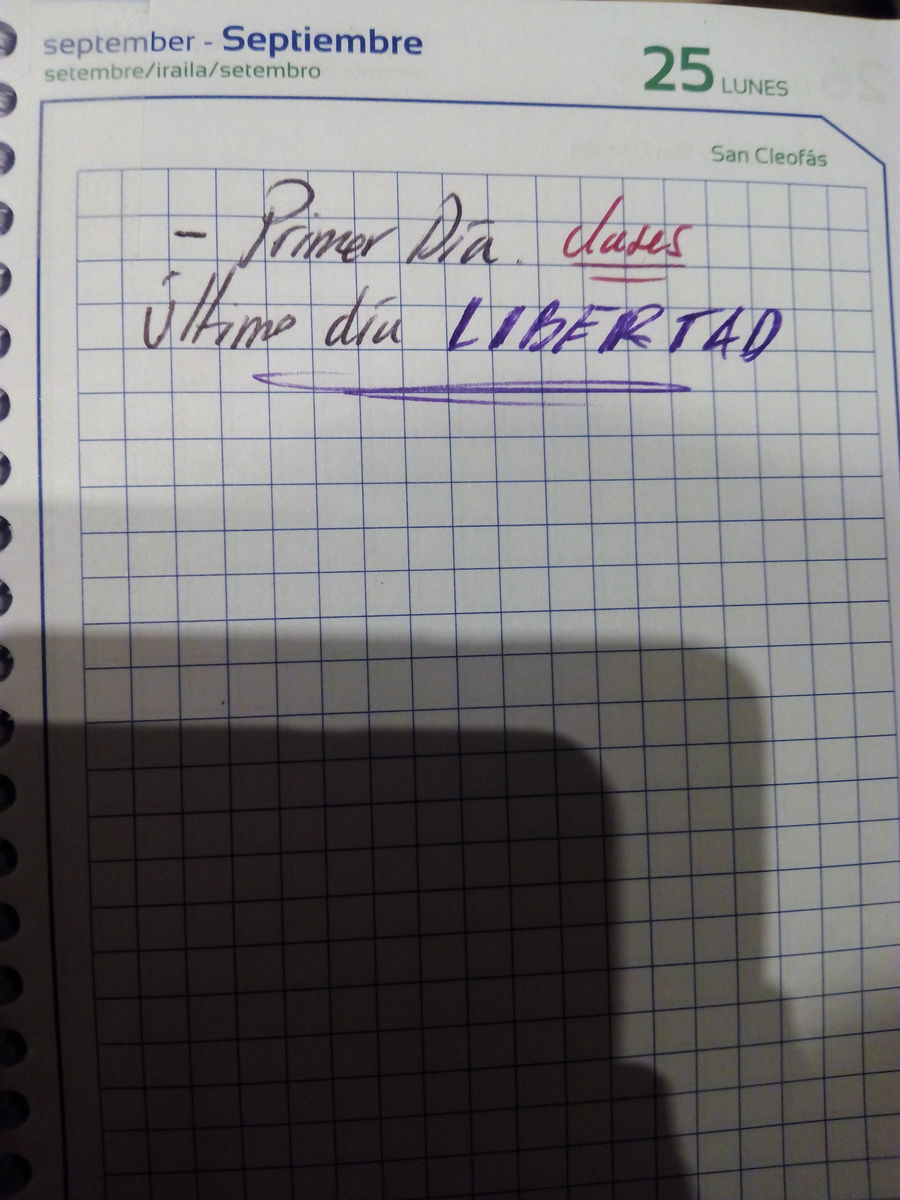 september - Septiembre
setembre/iraila/setembro
25 LUNES
San Cleofás
- Primer Día. clases
Último día LIBERTAD